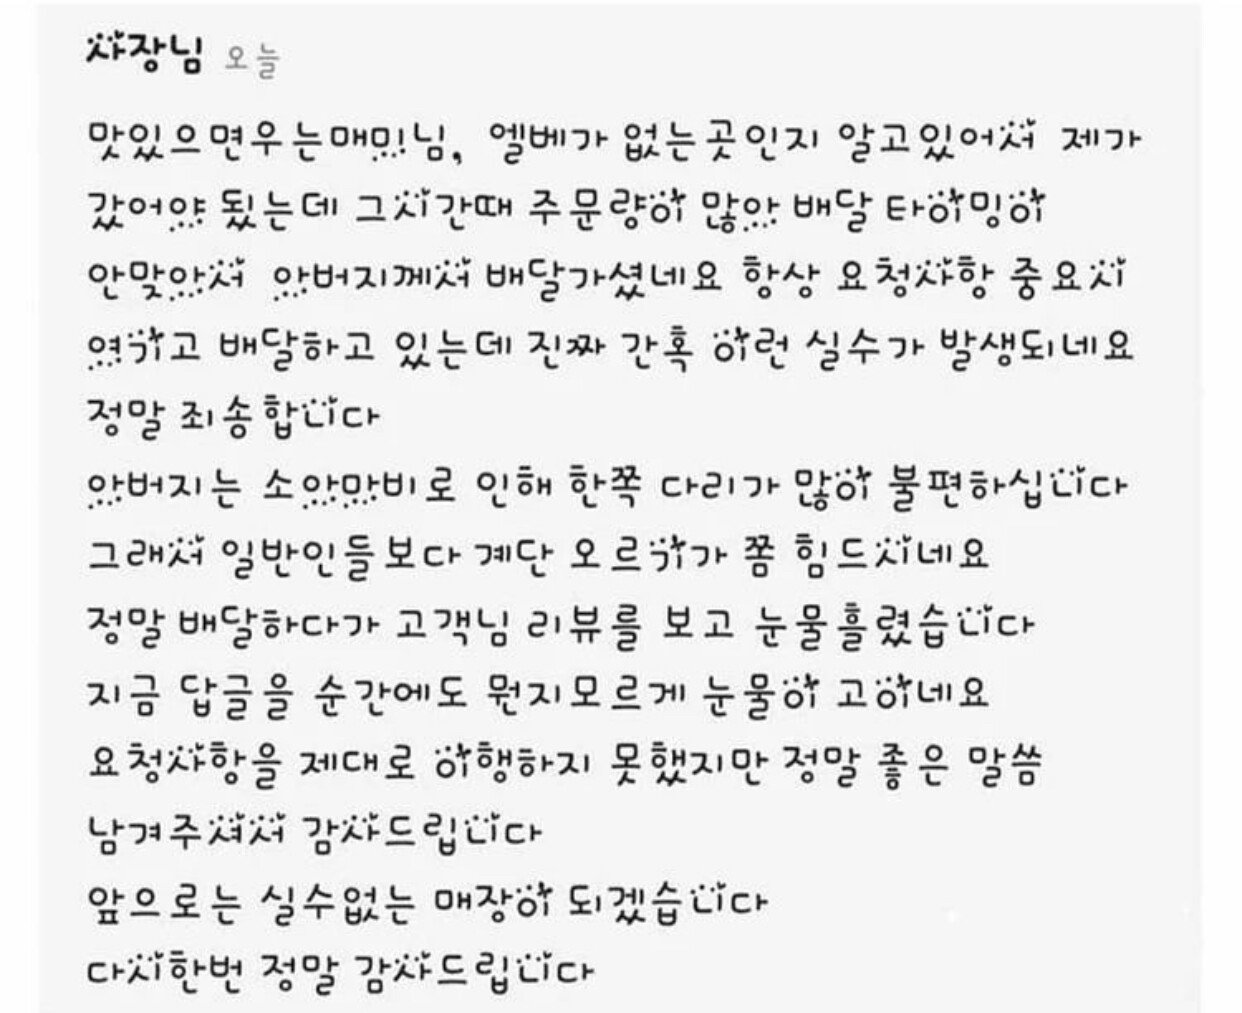 사장님 오늘
맛있으면우는매민님, 엘베가 없는곳인지 알고있어서 제가
갔어야 됬는데 그시간때 주문량이 많아 배달 타이밍이
안맞아서 아버지께서 배달가셨네요 항상 요청사항 중요시
여기고 배달하고 있는데 진짜 간혹 이런 실수가 발생되네요
정말 죄송합니다
아버지는 소아마비로 인해 한쪽 다리가 많이 불편하십니다
그래서 일반인들보다 계단 오르기가 쫌 힘드시네요
정말 배달하다가 고객님 리뷰를 보고 눈물흘렸습니다
지금 답글을 순간에도 뭔지모르게 눈물이 고이네요
요청사항을 제대로 이행하지 못했지만 정말 좋은 말씀
남겨주셔서 감사드립니다
앞으로는 실수없는 매장이 되겠습니다
다시한번 정말 감사드립니다